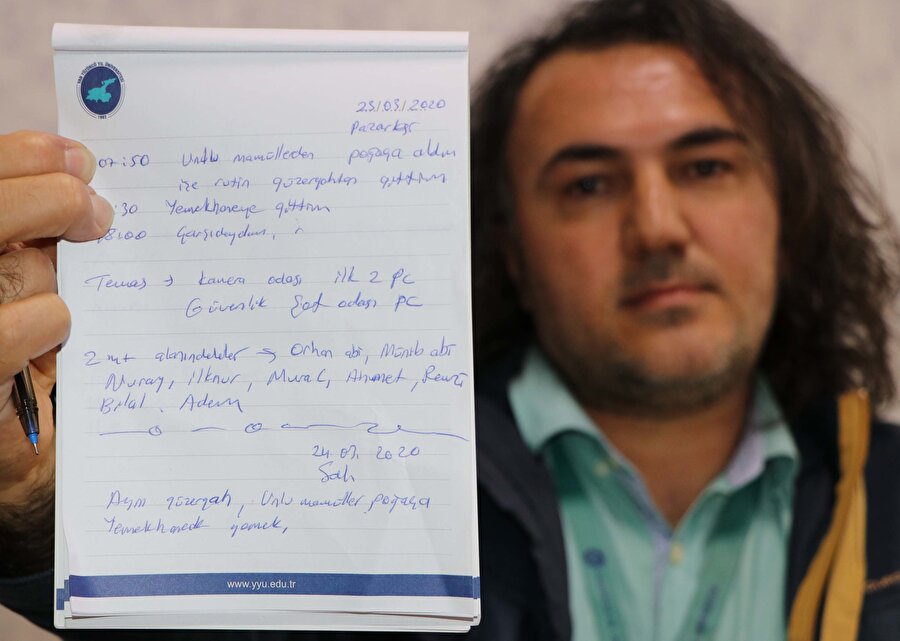 VAN YÜZÜNCÜ YIL ÜNİVERSİTESİ
1982
23/03/2020
Pazartesi
07:50 Unlu mamülleden poğaça aldım
işe rutin güzergahtan gittim
:30 Yemekhaneye gittim
18:00 Çarşıdaydım,
Temas → kamera odası ilk 2 PC
Güvenlik Şef odası PC
2 mt alanındekiler → Orhan abi, Münib abi
Nuray, ilknur, Murat, Ahmet, Remzi
Bilal. Adem
24.03.2020
Salı
Aynı güzergah, Unlu mamüller poğaça
Yemekhanede yemek,
www.yyu.edu.tr